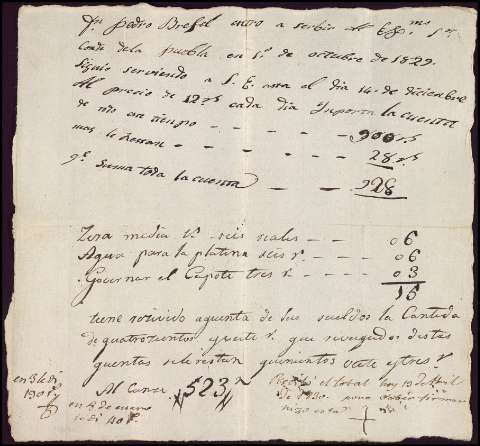 Dn Pedro Brefol entro a serbir al Exmo Sor
Conde de la puebla en 1o de octubre de 1829.
Siguio serviendo a S. E. asta el dia 14 de diciembre
Al precio de 12 rs cada dia Importa la cuenta
de este tiempo - - - - - 900 rs
mas le - - - - - 28 rs
qe Suma toda la cuenta - - - 928
Zera media lb seis reales - - - 06
Agua para la platina seis r. - - 06
Governar el Capote tres r - - 03
15
tiene recivido aquenta de sus sueldos la Cantida
de quatrocientos y veite r. que revagados distas
quentas sele restan quinientos veite y tres r
Al Conse 523 r
en 3 le di
190 r
en 4 de enero
le di 40 r.
Recibio el total hoy 10 de Abril
de 1830. no sabia firmar